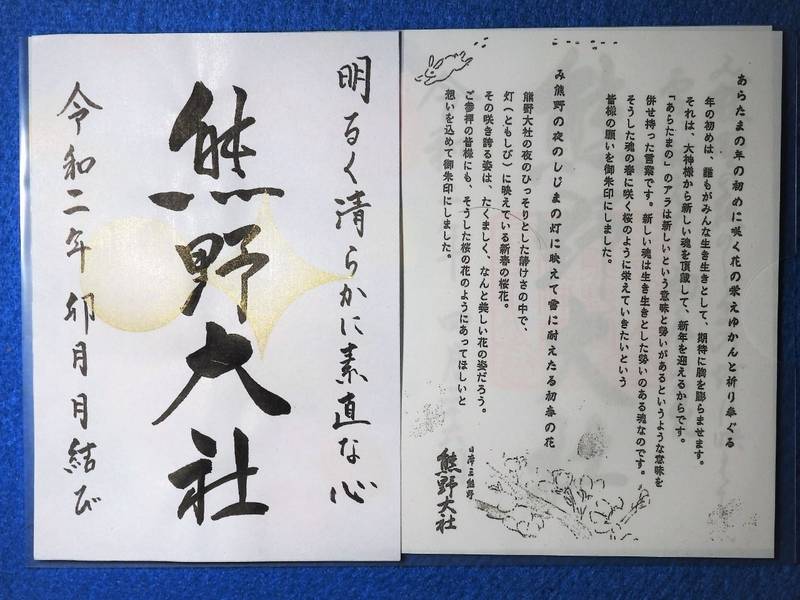 あらたまの年の初めに咲く花の栄えゆかんと祈り奉ぐる
年の初めは、誰もがみんな生き生きとして、期待に胸を膨らませます。
それは、大神様から新しい魂を頂蔵して、新年を迎えるからです。
「あらたまの」のアラは新しいという意味と勢いがあるというような意味を
併せ持った言葉です。新しい魂は生き生きとした勢いのある魂なのです。
そうした魂の春に咲く桜のように栄えていきたいという
皆様の願いを御朱印にしました。
み熊野の夜のしじまの灯に映えて雪に耐えたる初春の花
熊野大社の夜のひっそりとした静けさの中で、
灯（ともしび）に映えている新春の桜花。
その咲き誇る姿は、たくましく、なんと美しい花の姿だろう。
ご参拝の皆様にも、そうした桜の花のようにあってほしいと
想いを込めて御朱印にしました。
日本三熊野
熊野大社
明るく清らかに素直な心
熊野大社
令和二年 卯月 月結び